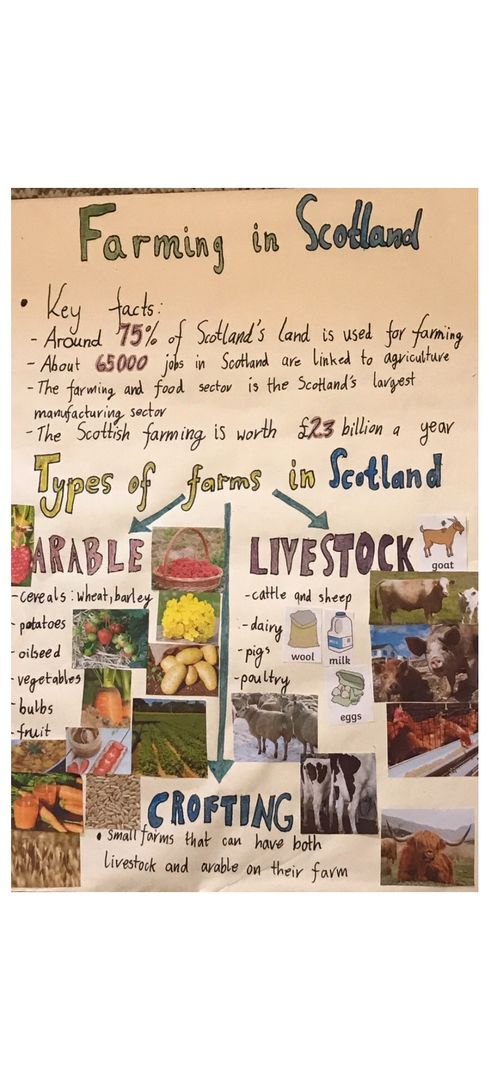 Farming in Scotland
• Key facts:
- Around 75% of Scotland's land is used for farming
- About 65000 jobs in Scotland are linked to agriculture
- The farming and food sector is the Scotland's largest
manufacturing sector
- The Scottish farming is worth £23 billion a year
Types of farms in Scotland
ARABLE
- cereals: wheat, barley
- potatoes
- oilseed
- vegetables
- bulbs
- fruit
LIVESTOCK
goat
- cattle and sheep
- dairy
- pigs
- poultry
wool
milk
eggs
CROFTING
• small farms that can have both
livestock and arable on their farm